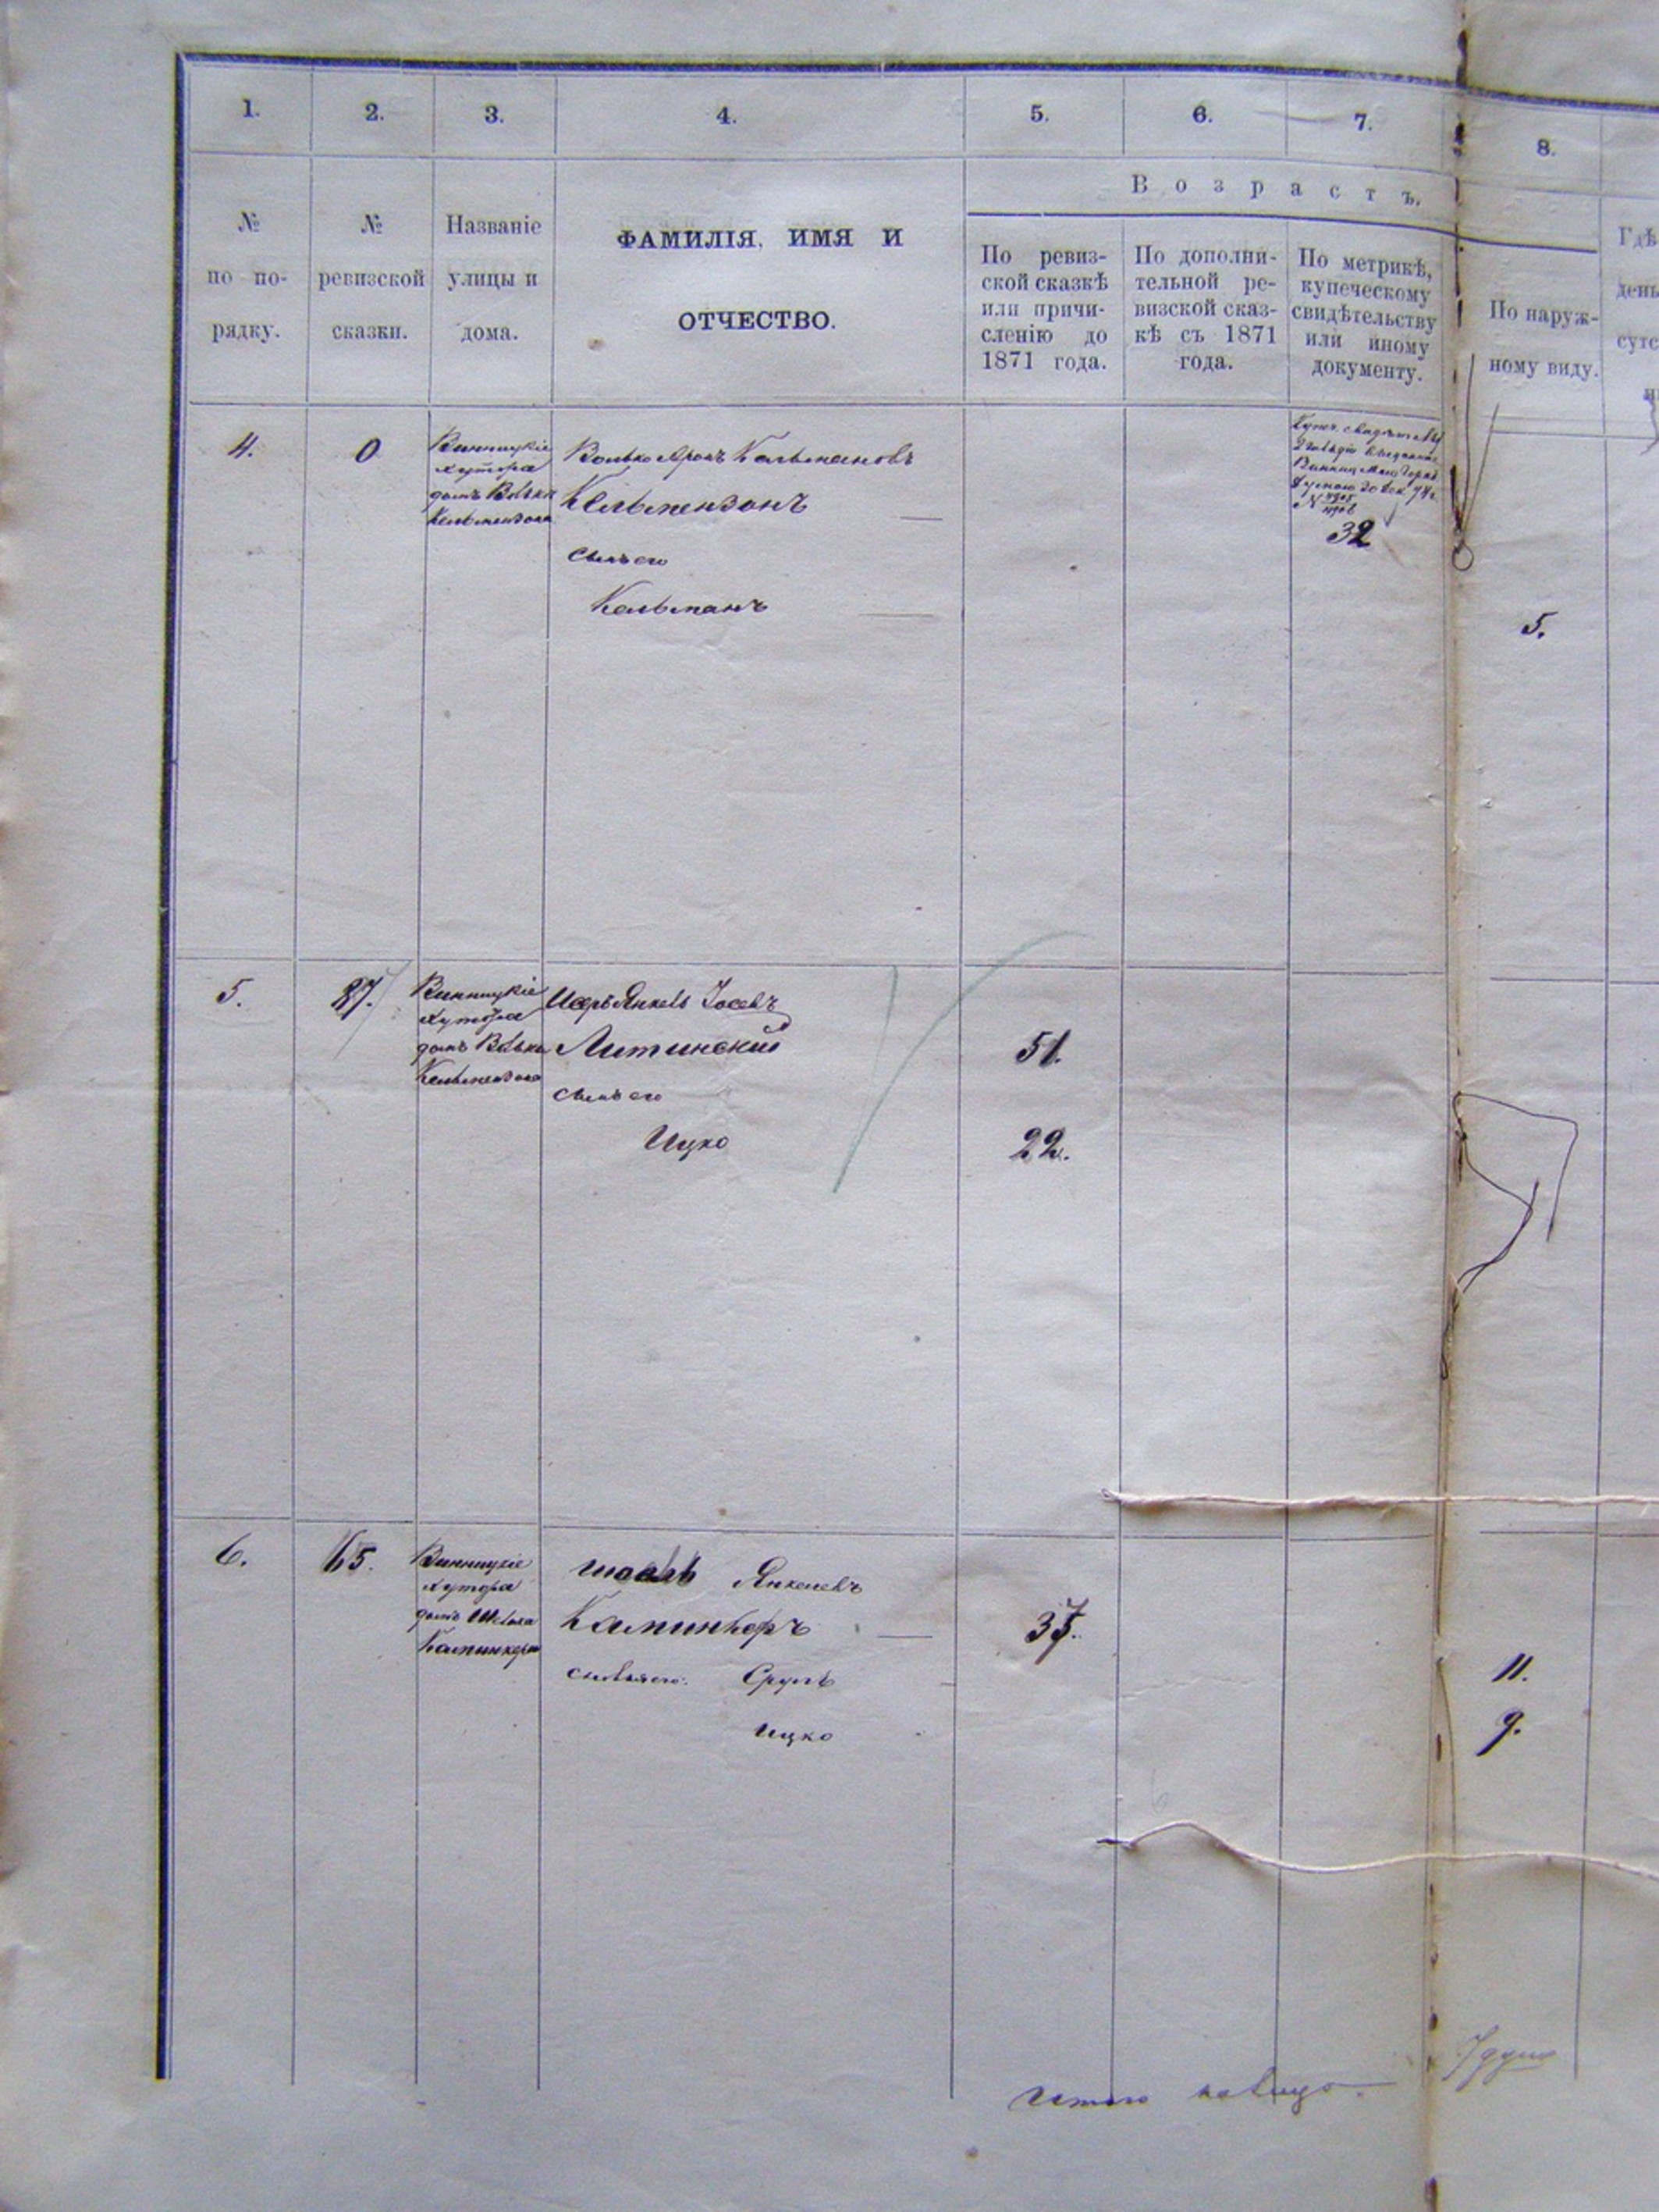 1. 2. 3. 4. 5. 6. 7. 8.
Возрастъ.
№ по по-рядку.
№ ревизской сказки.
Названіе улицы и дома.
ФАМИЛІЯ, ИМЯ И
ОТЧЕСТВО.
По ревиз-
ской сказкѣ
или причи-
сленію до
1871 года.
По дополни-
тельной ре-
визской сказ-
кѣ съ 1871
года.
По метрикѣ,
купеческому
свидѣтельству
или иному
документу.
По наруж-
ному виду.
Гдѣ
день
сутс
4.
0
Винницкіе
хутора
домъ Волька
Кельмензона
Волько Аронъ Кальмановъ
Кельмензонъ
сынъ его
Кальманъ
32
5.
5.
87.
Винницкіе
хутора
домъ Волька
Кельмензона
Янкель Іосевъ
Литинскій
51.
сынъ его
Ицко
22.
6.
65.
Винницкіе
хутора
домъ
Каминкера
Янкелевъ
Каминкеръ
37.
сыновья его: Сруль
11.
Ицко
9.
Итого